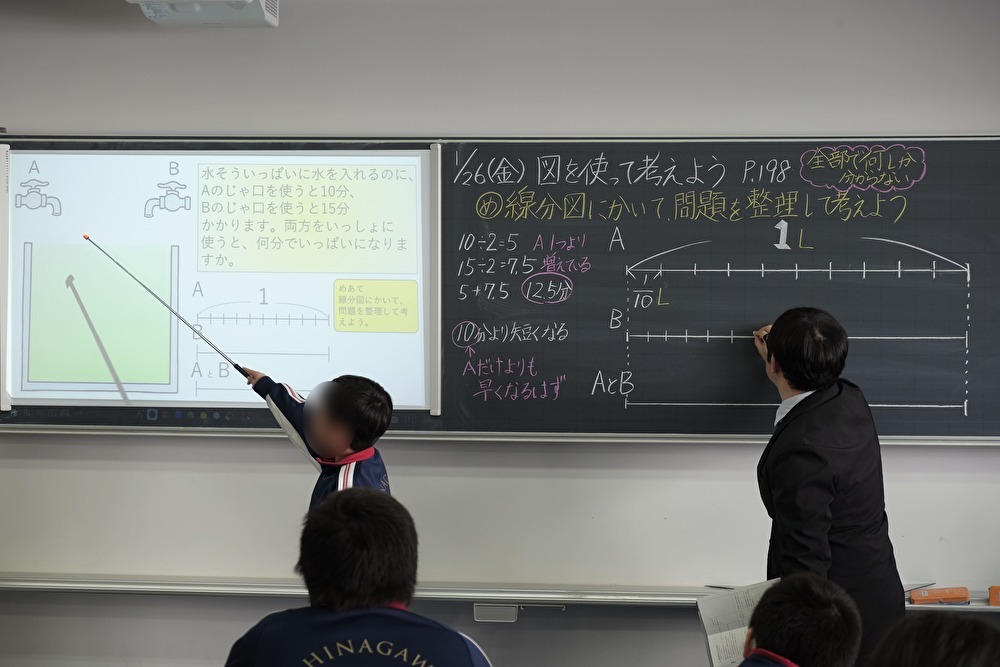 A
B
水そういっぱいに水を入れるのに、
Aのじゃ口を使うと10分、
Bのじゃ口を使うと15分
かかります。両方をいっしょに
使うと、何分でいっぱいになりま
すか。
A
1
めあて
線分図にかいて、
問題を整理して考
えよう。
B
AとB
1/26(金) 図を使って考えよう P.198
全部で何Lか
分からない
め 線分図にかいて、問題を整理して考えよう
10÷2=5 A1つより
15÷2=7.5 増えている
5+7.5 12.5分
10分より短くなる
Aだけよりも
早くなるはず
A
1L
1/10 L
B
AとB
SHINAGAW